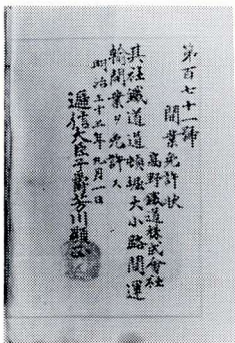 第百七十一號
開業免許狀
高野鐵道株式會社
其社鐵道道頓堀大小路間運
輸開業ヲ免許ス
明治三十三年九月一日
遞信大臣子爵芳川顯正